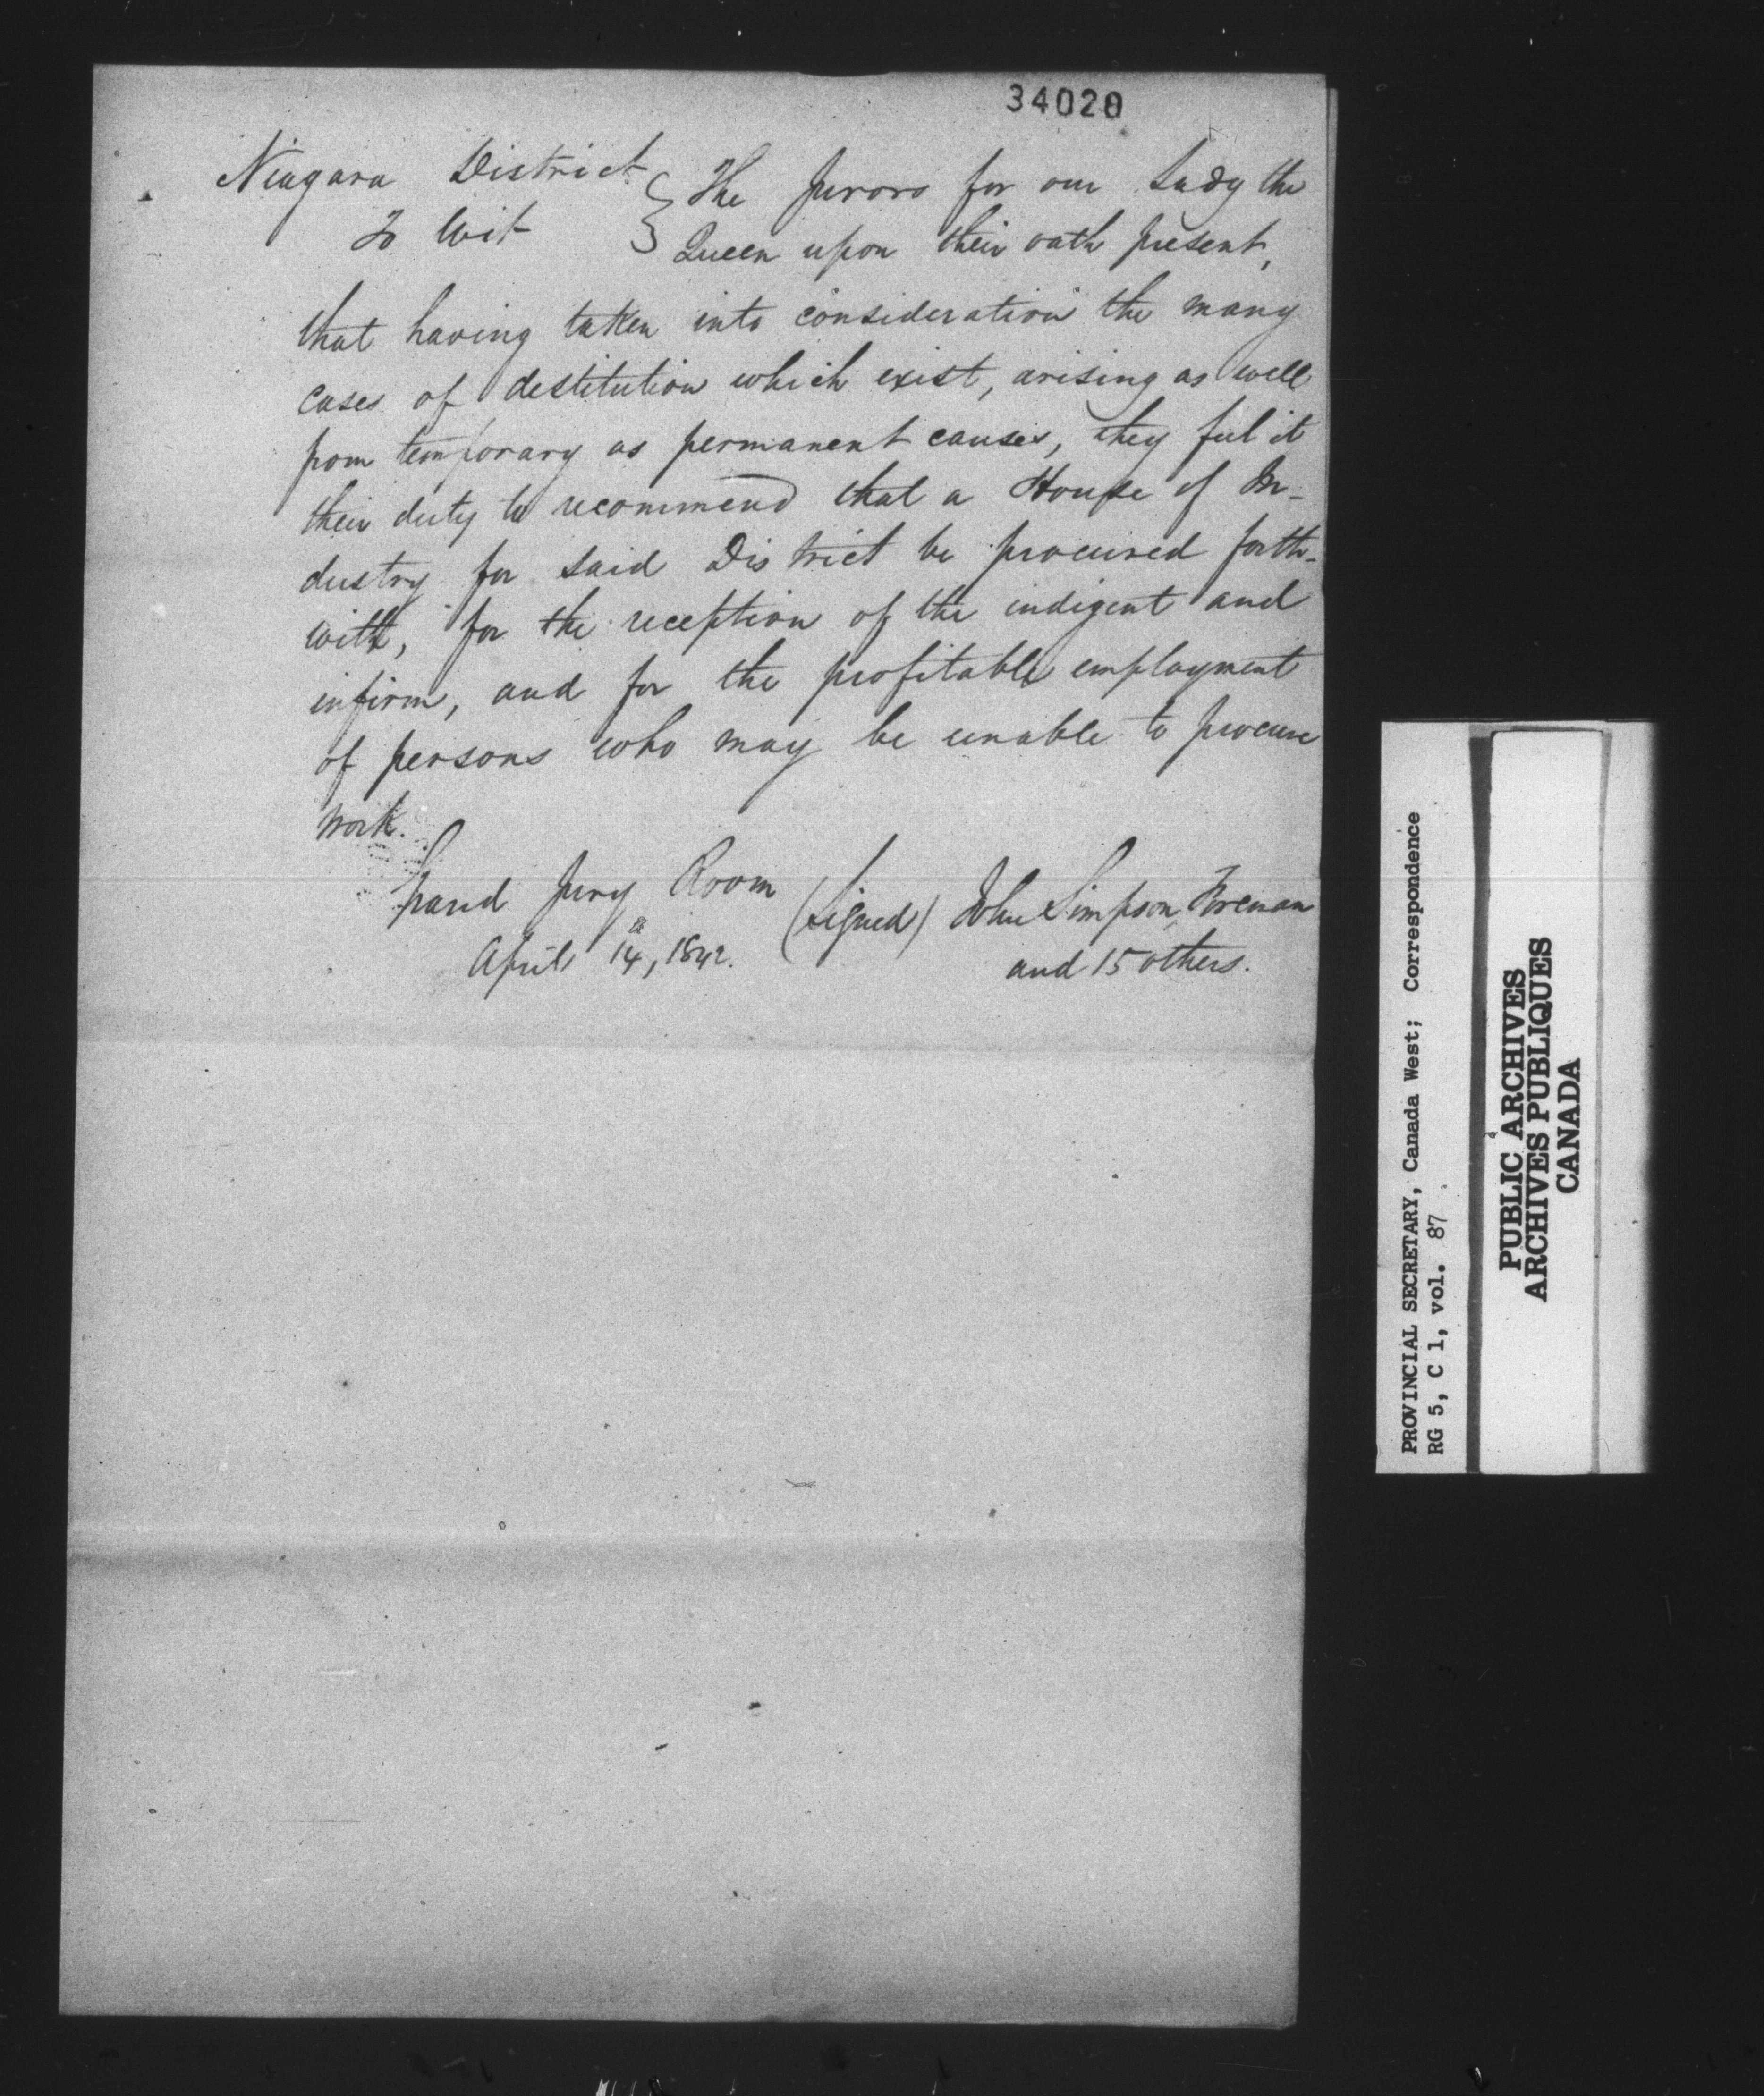 34020
Niagara District } The Jurors for our Lady the
To Wit } Queen upon their oath present,
that having taken into consideration the many
cases of destitution which exist, arising as well
from temporary as permanent causes, they feel it
their duty to recommend that a House of In-
dustry for said District be procured forth-
with, for the reception of the indigent and
infirm, and for the profitable employment
of persons who may be unable to procure
work.
Grand Jury Room (Signed) John Simpson, Foreman
April 14th, 1842. and 15 others.
PROVINCIAL SECRETARY, Canada West; Correspondence
RG 5, C 1, vol. 87
PUBLIC ARCHIVES
ARCHIVES PUBLIQUES
CANADA